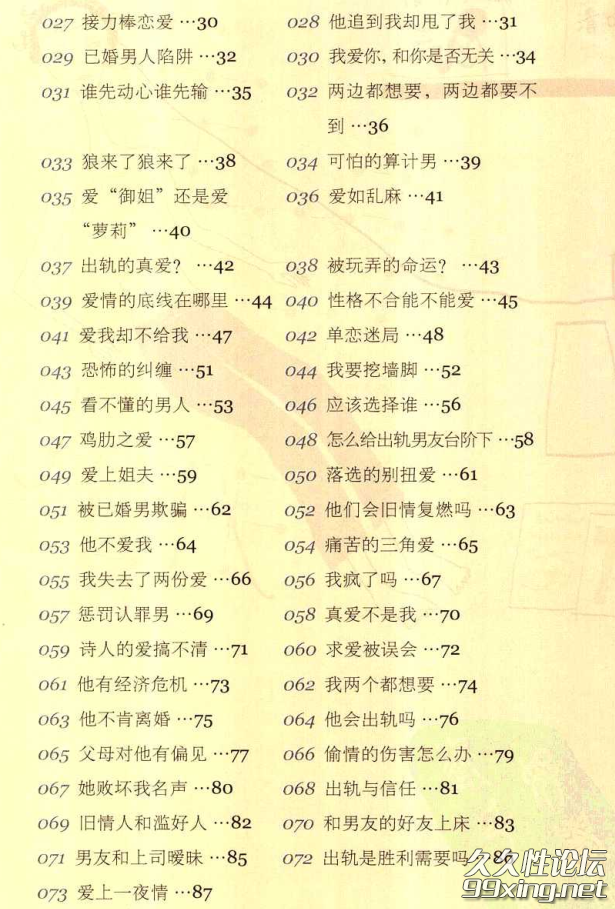 027 接力棒恋爱 …30 028 他追到我却甩了我 …31
029 已婚男人陷阱 …32 030 我爱你,和你是否无关 …34
031 谁先动心谁先输 …35 032 两边都想要，两边都要不
到 …36
033 狼来了狼来了 …38 034 可怕的算计男 …39
035 爱“御姐”还是爱 036 爱如乱麻 …41
“萝莉” …40
037 出轨的真爱？ …42 038 被玩弄的命运？ …43
039 爱情的底线在哪里 …44 040 性格不合能不能爱 …45
041 爱我却不给我 …47 042 单恋迷局 …48
043 恐怖的纠缠 …51 044 我要挖墙脚 …52
045 看不懂的男人 …53 046 应该选择谁 …56
047 鸡肋之爱 …57 048 怎么给出轨男友台阶下 …58
049 爱上姐夫 …59 050 落选的别扭爱 …61
051 被已婚男欺骗 …62 052 他们会旧情复燃吗 …63
053 他不爱我 …64 054 痛苦的三角爱 …65
055 我失去了两份爱 …66 056 我疯了吗 …67
057 惩罚认罪男 …69 058 真爱不是我 …70
059 诗人的爱搞不清 …71 060 求爱被误会 …72
061 他有经济危机 …73 062 我两个都想要 …74
063 他不肯离婚 …75 064 他会出轨吗 …76
065 父母对他有偏见 …77 066 偷情的伤害怎么办 …79
067 她败坏我名声 …80 068 出轨与信任 …81
069 旧情人和滥好人 …82 070 和男友的好友上床 …83
071 男友和上司暧昧 …85 072 出轨是胜利需要吗 …86
073 爱上一夜情 …87
久久性论坛
99xing.net